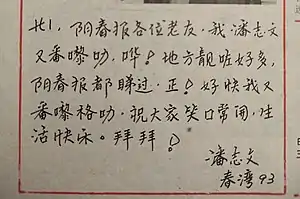 HI, 阳春报各位老友，我潘志文
又番嚟叻，哗！地方靓咗好多，
阳春报都睇过，正！好快我又
番嚟格叻，祝大家笑口常开，生
活快乐。拜拜！
潘志文
春湾 93